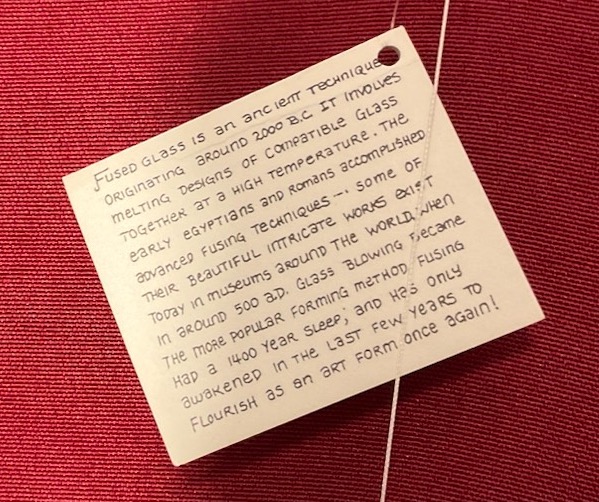 FUSED GLASS IS an ancient TECHNIQUE
ORIGINATING around 2000 B.C. IT INVOLVES
MELTING DESIGNS OF COMPATIBLE GLASS
TOGETHER AT a HIGH TEMPERATURE. THE
early EGYPTIANS and ROMANS accomplished
advanced FUSING TECHNIQUES --- some OF
THEIR BEAUTIFUL INTRICATE WORKS EXIST
TODAY in museums around THE WORLD. WHEN
in around 500 a.D. GLASS BLOWING Became
THE MORE POPULAR FORMING METHOD, FUSING
HAD a 1400 YEAR SLEEP; and HAS ONLY
awakened in THE LAST FEW YEARS TO
FLOURISH as an ART FORM once again!